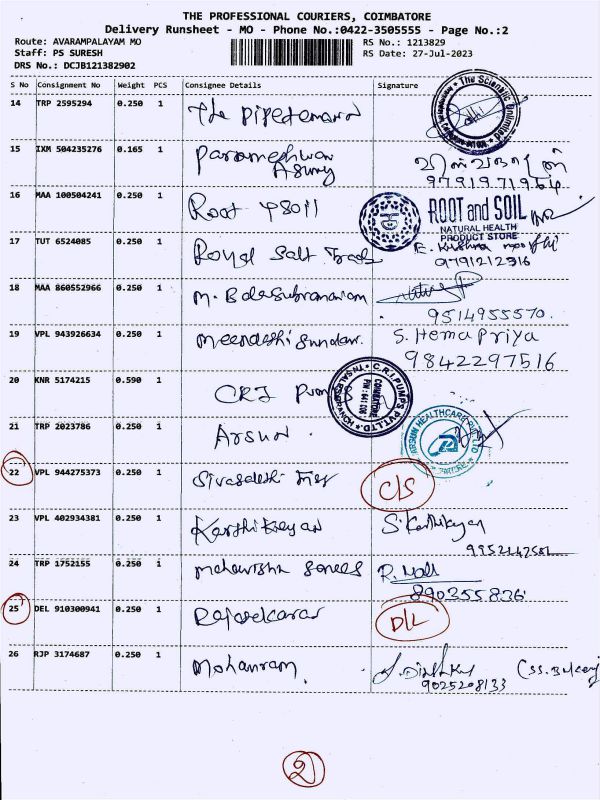 THE PROFESSIONAL COURIERS, COIMBATORE
Delivery Runsheet - MO - Phone No.:0422-3505555 - Page No.:2
Route: AVARAMPALAYAM MO RS No.: 1213829
Staff: PS SURESH RS Date: 27-Jul-2023
DRS No.: DCJB121382902
S No Consignment No Weight PCS Consignee Details Signature
14 TRP 2595294 0.250 1 The
The Scientific Unlimited
15 IXM 504235276 0.165 1 Parameshwar
9791971964
16 MAA 100504241 0.250 1 Root & Soil
ROOT and SOIL
NATURAL HEALTH
PRODUCT STORE
17 TUT 6524085 0.250 1 Royal Salt Trade
9791212916
18 MAA 860552966 0.250 1 M. Balasubramaniam
9514955570.
19 VPL 943926634 0.250 1 Meenakshi Sundar. S. Hema Priya
9842297516
20 KNR 5174215 0.590 1 CRI Pum
C.R.I.PUMPS PVT.LTD.
COIMBATORE
BRANCH
21 TRP 2023786 0.250 1 Arsun.
ARSUN HEALTHCARE PVT LTD
22 VPL 944275373 0.250 1 C/S
23 VPL 402934381 0.250 1 Karthikeyan S. Karthikeyan
24 TRP 1752155 0.250 1
890355836
25 DEL 910300941 0.250 1 Rajasekaran D/L
26 RJP 3174687 0.250 1 Mohanram.
9025208133
2